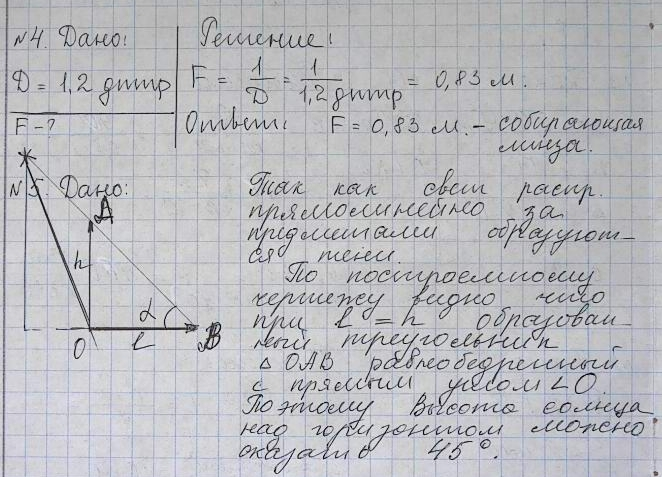 №4. Дано:
D = 1,2 дптр
F - ?
Решение:
F = 1/D = 1/1,2 дптр = 0,83 м.
Ответ: F = 0,83 м. - собирающая
линза.
№5. Дано:
A
h
α
O
l
B
Так как свет распр.
прямолинейно за
предметами образуют-
ся тени.
По построенному
чертежу видно что
при l = h образован-
ный треугольник
△ OAB равнобедренный
с прямым углом ∠O.
Поэтому высота солнца
над горизонтом можно
сказать 45°.